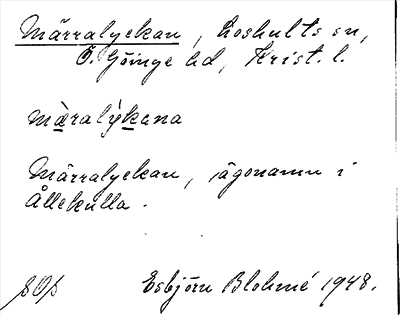 Märralyckan, Loshults sn,
Ö. Göinge hd, Krist. l.
mæralýkana
Märralyckan, ägonamn i
Ållekulla.
Esbjörn Blohmé 1948.